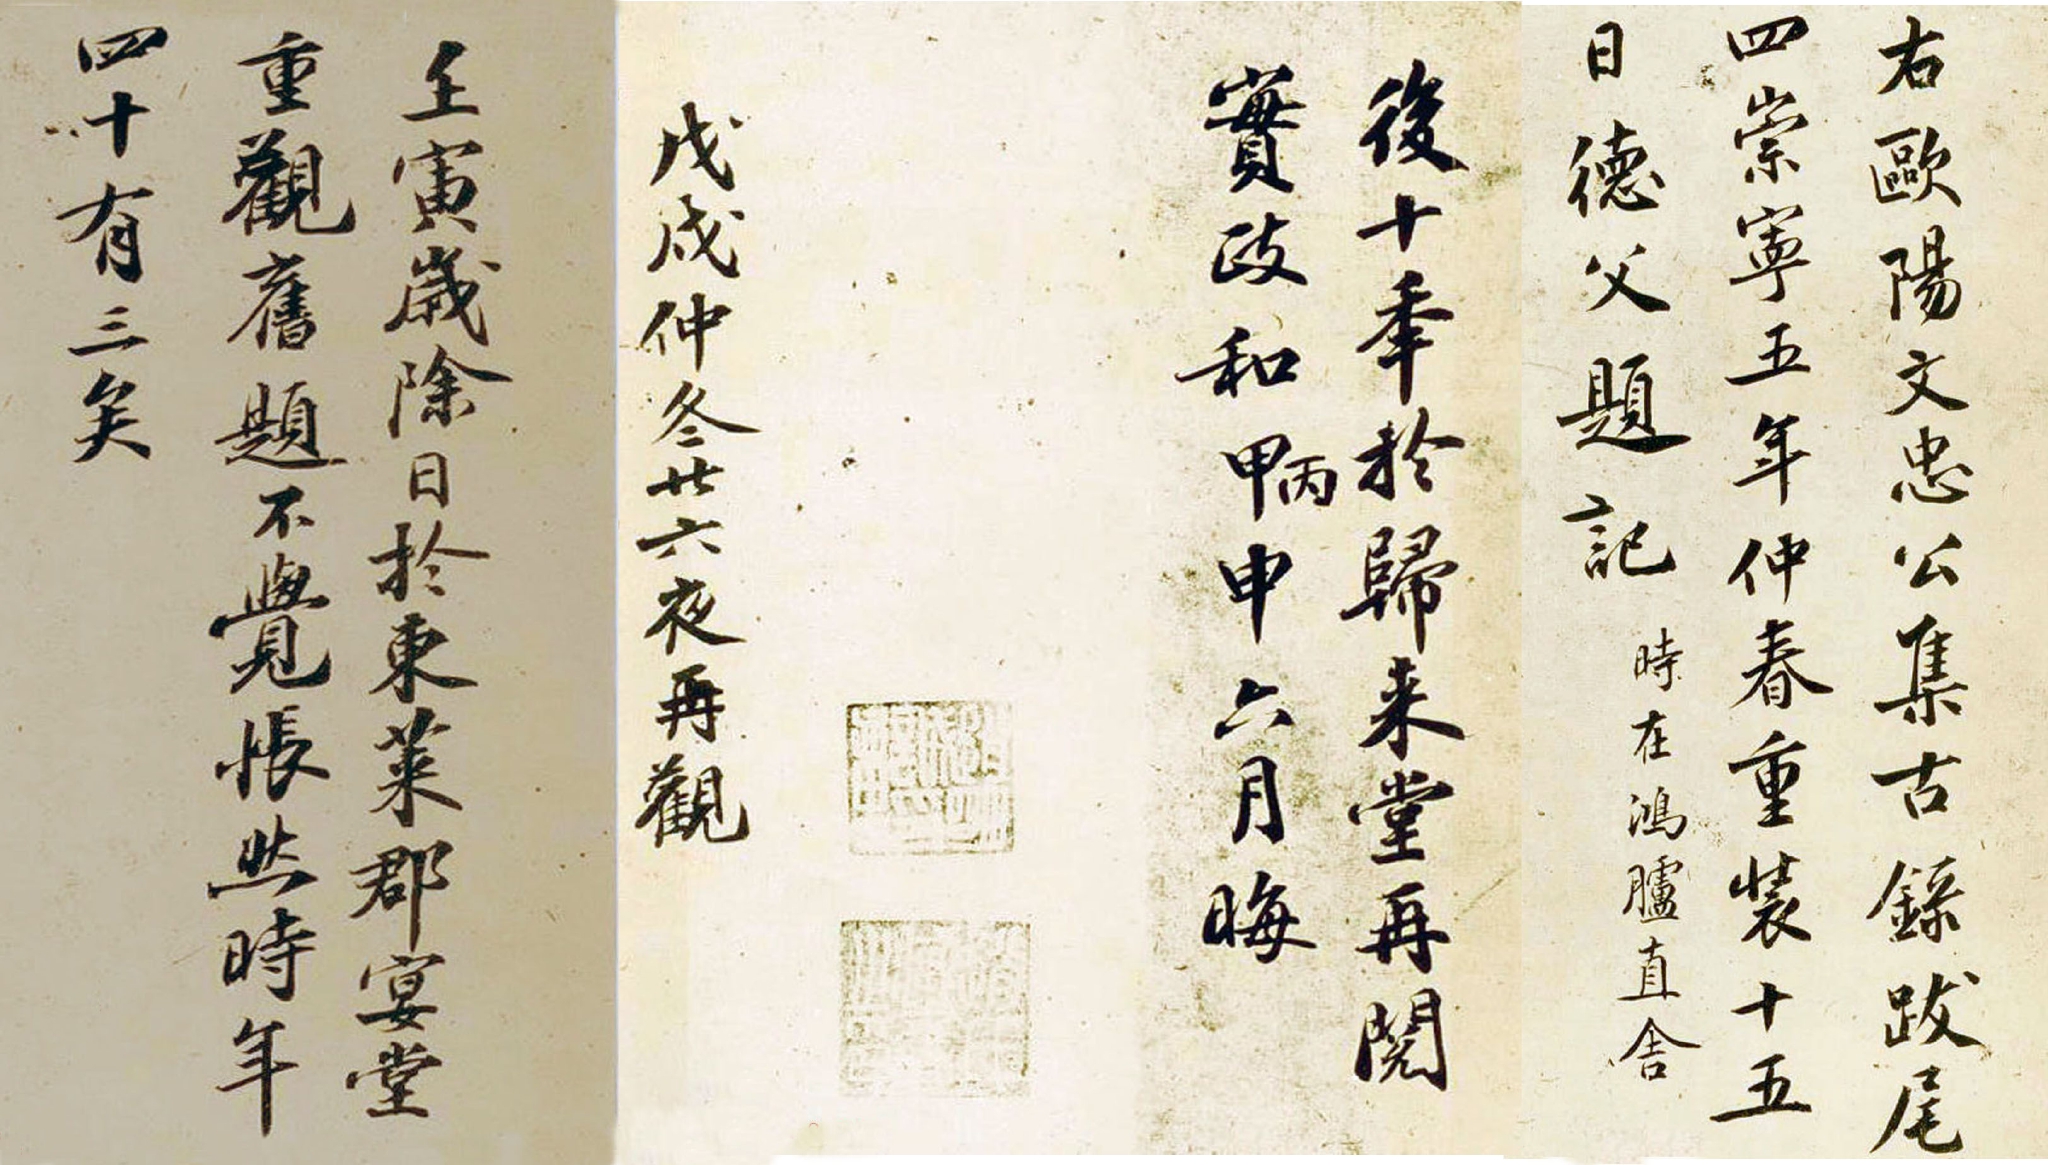 右歐陽文忠公集古錄跋尾
四崇寧五年仲春重裝十五
日德父題記
時在鴻臚直舍
後十年於歸来堂再閱
實政和甲丙申六月晦
戊戌仲冬廿六夜再觀
壬寅歲除日於東萊郡宴堂
重觀舊題不覺悵然時年
四十有三矣